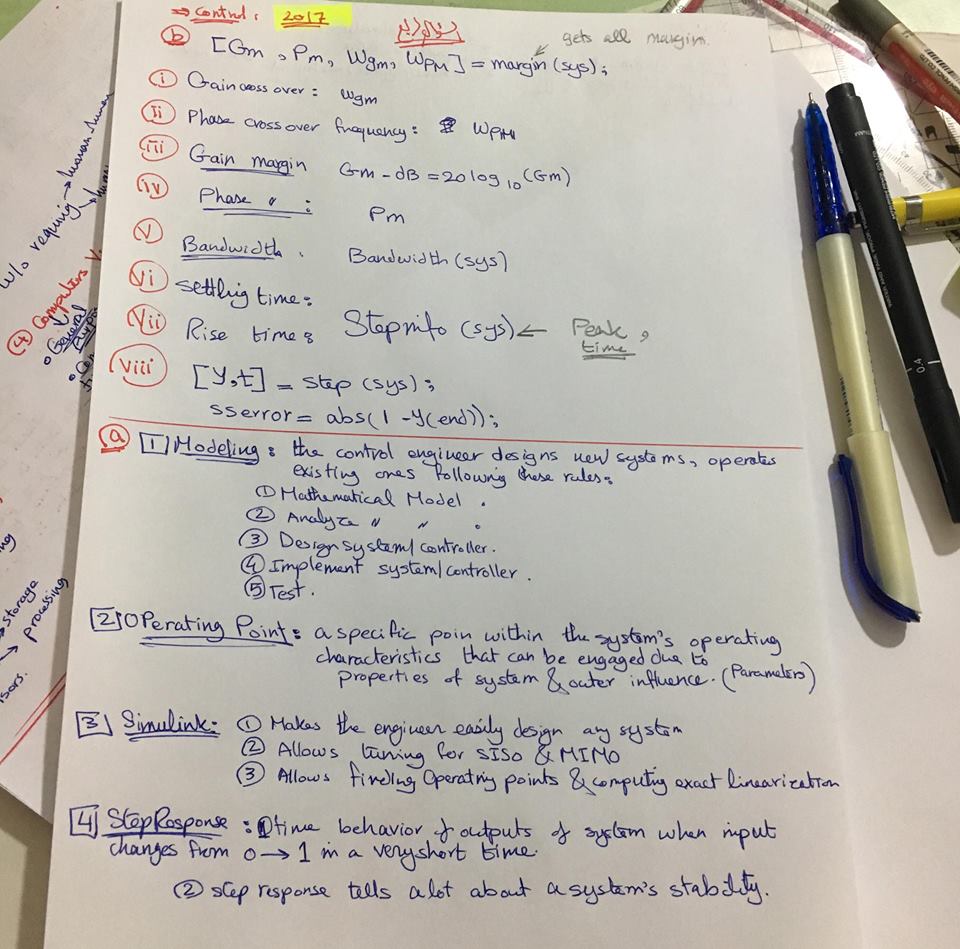 ⇒ Control: 2017
(b) [Gm, Pm, Wgm, WPM] = margin(sys); ← gets all margins.
(i) Gain cross over: Wgm
(ii) Phase cross over frequency: WPM
(iii) Gain margin Gm-dB = 20 log10 (Gm)
(iv) Phase " : Pm
(v) Bandwidth. Bandwidth(sys)
(vi) settling time:
(vii) Rise time: Stepinfo (sys) ← Peak,
time
(viii) [Y,t] = step (sys);
sserror = abs(1 - Y(end));
(a) 1 Modeling: the control engineer designs new systems, operates
existing ones following these rules:
① Mathematical Model.
② Analyze " " .
③ Design system/controller.
④ Implement system/controller.
⑤ Test.
2 Operating Point: a specific poin within the system's operating
characteristics that can be engaged due to
properties of system & outer influence. (Parameters)
3 Simulink: ① Makes the engineer easily design any system
② Allows tuning for SISO & MIMO
③ Allows finding Operating points & computing exact linearization
4 Step Response: ① time behavior of outputs of system when input
changes from 0 → 1 in a very short time.
② step response tells a lot about a system's stability.
w/o requiring → human
④ Computers
General
storage
→ processing
0.4